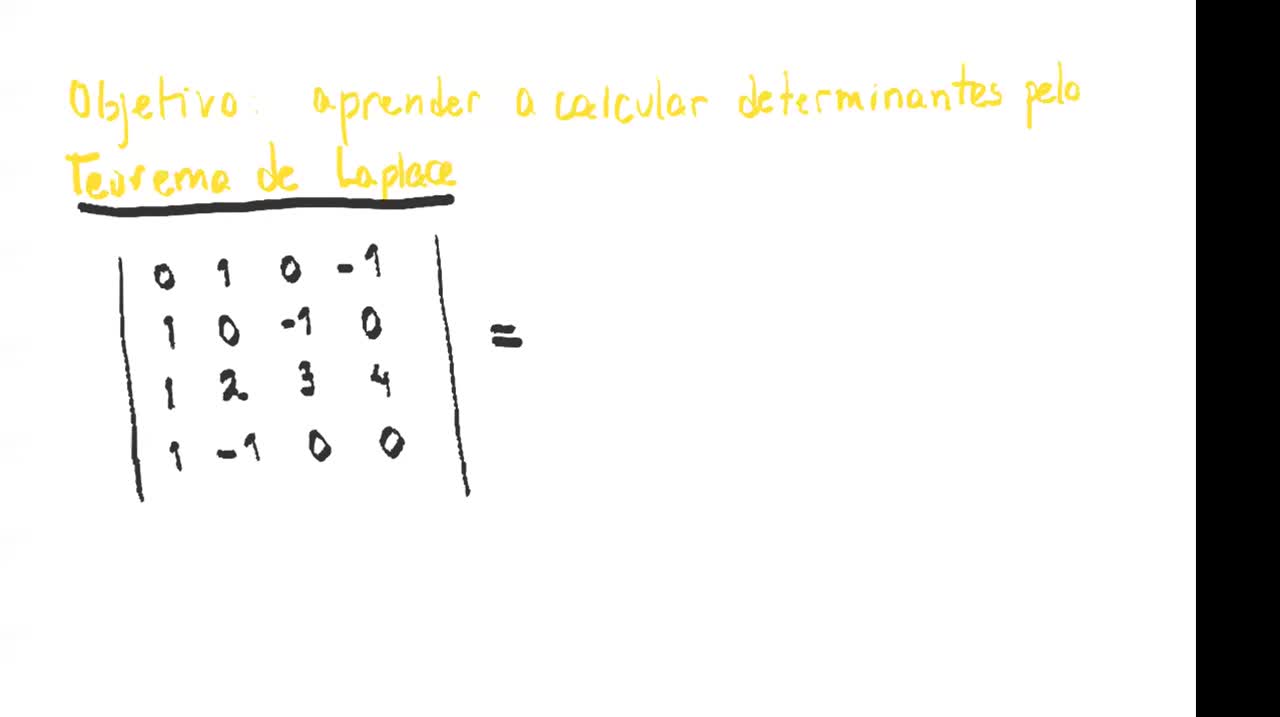 Objetivo: aprender a calcular determinantes pelo
Teorema de Laplace
0 1 0 -1
1 0 -1 0 =
1 2 3 4
1 -1 0 0